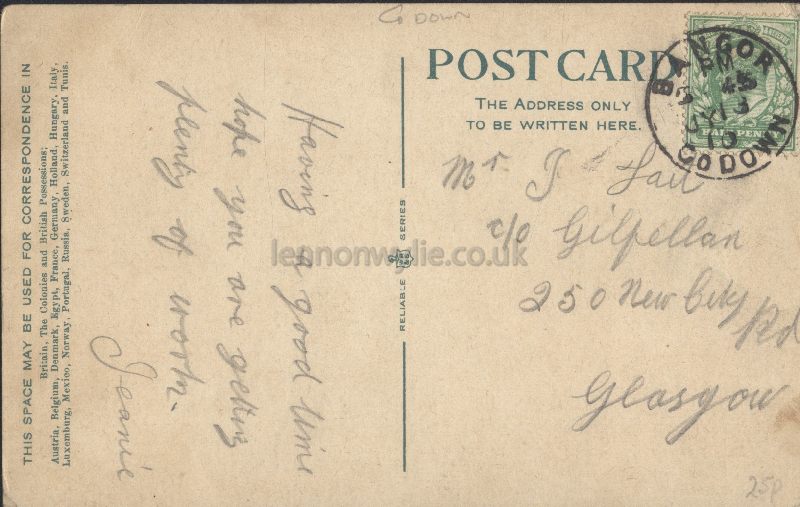 Co DOWN
POST CARD
THE ADDRESS ONLY
TO BE WRITTEN HERE.
BANGOR
PM
13
Co DOWN
HALFPENNY
THIS SPACE MAY BE USED FOR CORRESPONDENCE IN
Britain, The Colonies and British Possessions;
Austria, Belgium, Denmark, Egypt, France, Germany, Holland, Hungary, Italy,
Luxemburg, Mexico, Norway, Portugal, Russia, Sweden, Switzerland and Tunis.
Having a good time
hope you are getting
plenty of
Jeanie
RELIABLE SERIES
Mr. J
c/o Gilfellan
250 New City
Rd
Glasgow
25p
lennonwylie.co.uk